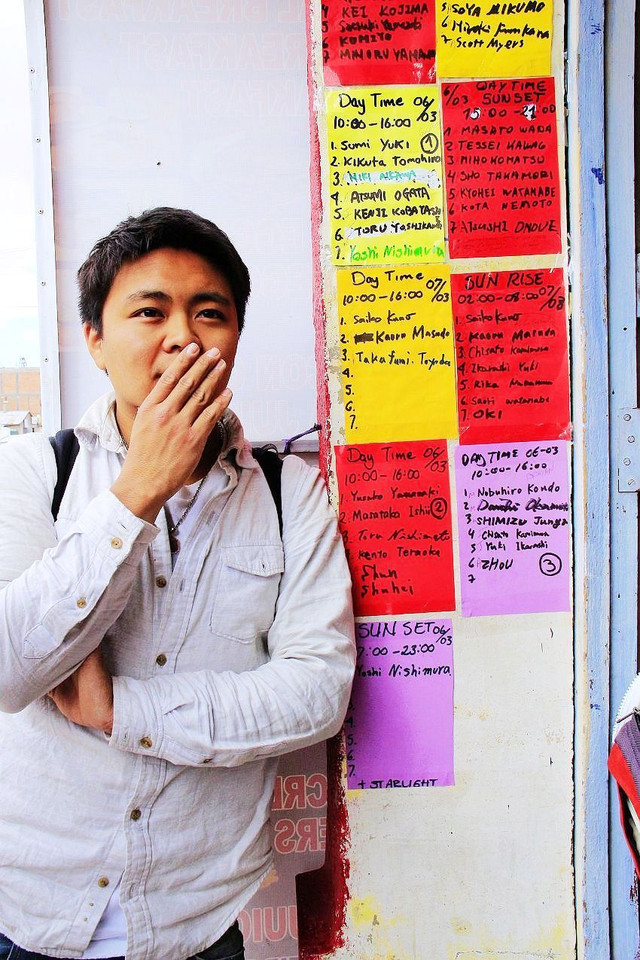 4 KEI KOJIMA
5 Satsuki Yamazaki
6 KUMIYO
7 MINORU YAMA
5 SOYA MIKUMO
6
7 Scott Myers
Day Time 06/03
10:00 - 16:00
1. SUMI YUKI ①
2. KIKUTA Tomohiro
3.
4. ATSUMI OGATA
5. KENJI KOBAYAS
6. TORU YOSHIKA
7. Yoshi Nishimura
6/03 DAY TIME
SUNSET
15:00 - 21:00
1 MASATO WADA
2 TESSEI
3 MIHO KOMATSU
4 SHO TAKAMORI
5 KYOHEI WATANABE
6 KOTA NEMOTO
7 ATSUSHI INOUE
Day Time 07/03
10:00 - 16:00
1. Saiko Kano
2. Kaoru Masada
3. Takafumi. Toyoda
4.
5.
6.
7.
SUN RISE
02:00 - 08:00 07/03
1. Saiko Kano
2. Kaoru Masada
3. Chisato
4. Ikarashi Yuki
5. Rika
6. Saori Watanabe
7. OKI
Day Time 06/03
10:00 - 16:00
1. Yusuke Yamazaki
2. Masataka Ishii ②
3. Toru Nishimoto
4. Kento Teraoka
Shun
Shuhei
DAY TIME 06-03
10:00 - 16:00
1. Nobuhiro Kondo
2.
3. SHIMIZU Junya
4 Chisato
5. Yuki Ikarashi
6. ZHOU ③
7
SUN SET 06/03
7:00 - 23:00
Yoshi Nishimura
4.
5.
6.
7.
+ STARLIGHT